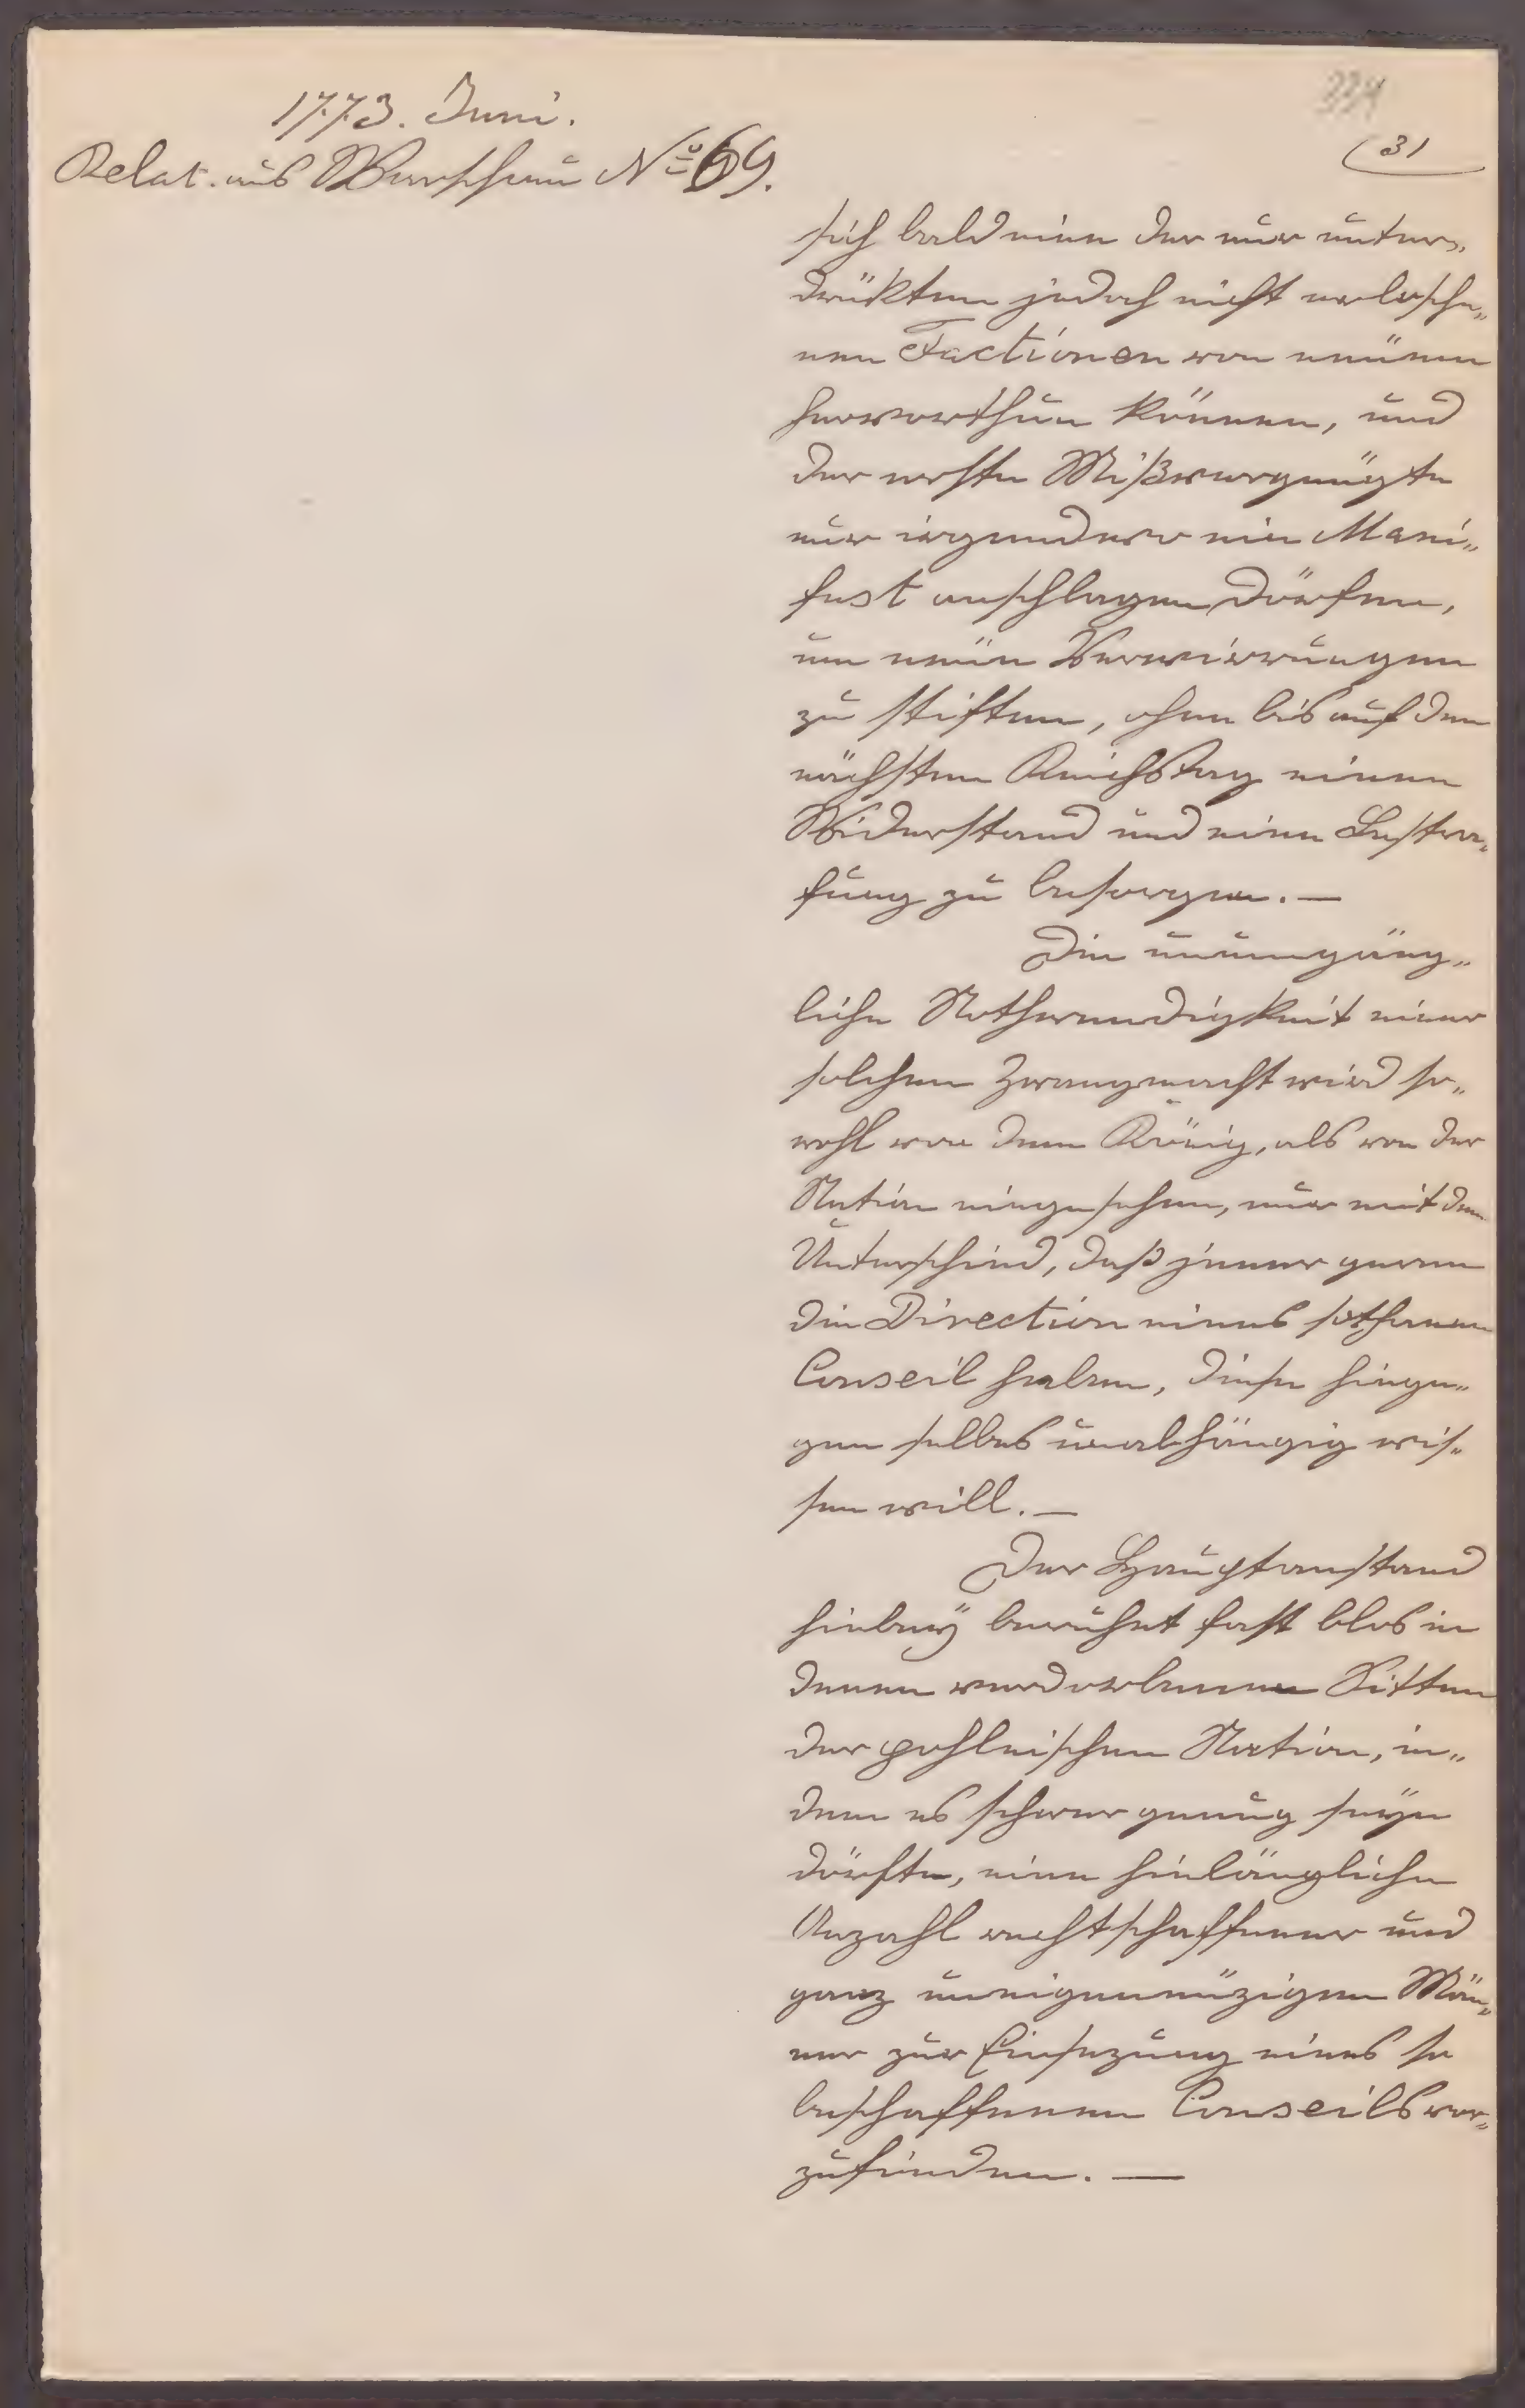 1773. Juni.
Relat. aus Warschau No 69.
334
(31
sich bald eine der nur unter„
drükten jedoch nicht erlosche„
nen Factionen von neüen
hervorthun können, und
der erste Mißvergnügte
nur irgendwo ein Mani„
fest anschlagen dörfen,
um neüe Verwirrungen
zu stiften, ohne bis auf den
nächsten Reichstag einen
Widerstand und eine Bestra„
fung zu besorgen. —
Die unumgäng„
liche Nothwendigkeit einer
solchen Zwangmacht wird so„
wohl von dem König, als von der
Nation eingesehen, nur mit dem
Unterschied, daß jener gerne
die Direction eines sothanen
Conseil haben, diese hinge„
gen selbes unabhängig wis„
sen will. —
Der Hauptanstand
hiebeÿ beruhet fast blos in
denen verdorbenen Sitten
der pohlnischen Nation, in„
dem es schwer genug seÿn
dörfte, eine hinlängliche
Anzahl rechtschaffener und
ganz uneigennüzigen Män„
ner zur Einsezung eines so
beschaffenen Conseils vor„
zufinden. —